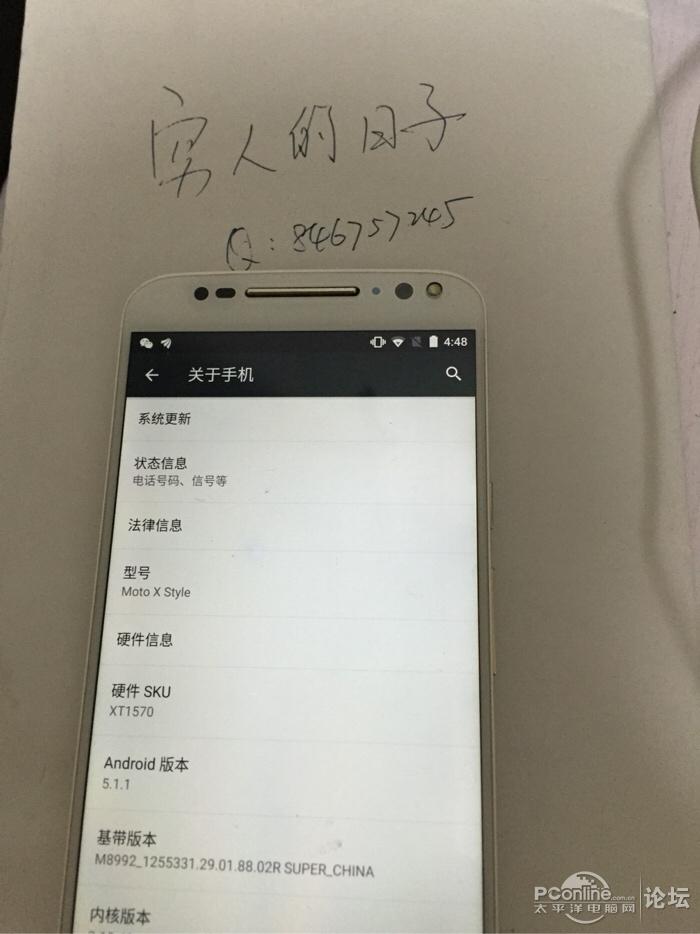 男人的日子
Q:846757245
4:48
关于手机
系统更新
状态信息
电话号码、信号等
法律信息
型号
Moto X Style
硬件信息
硬件 SKU
XT1570
Android 版本
5.1.1
基带版本
M8992_1255331.29.01.88.02R SUPER_CHINA
内核版本
PConline.com.cn 论坛
太平洋电脑网